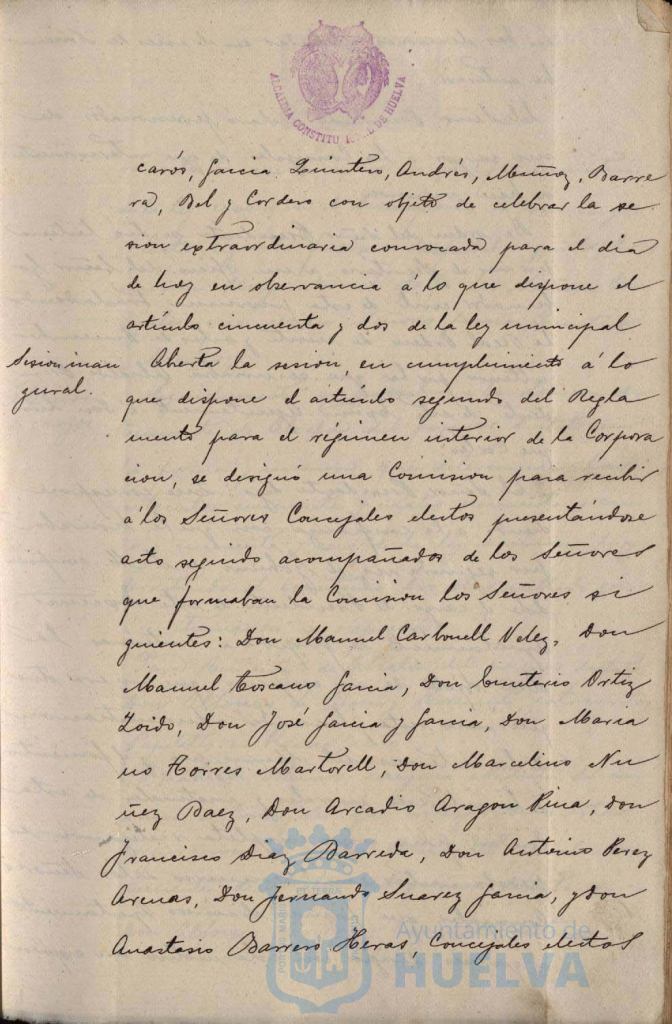 ALCALDIA CONSTITUCIONAL DE HUELVA
carós, Garcia Quintero, Andrés, Muñoz, Barre
ra, Bel y Cordero con objeto de celebrar la se
sion extraordinaria convocada para el dia
de hoy en observancia á lo que dispone el
artículo cincuenta y dos de la ley municipal
Sesion inau
gural.
Abierta la sesion, en cumplimiento á lo
que dispone el artículo segundo del Regla
mento para el régimen interior de la Corpora
cion, se designó una Comision para recibir
á los Señores Concejales electos presentándose
acto segundo acompañados de los Señores
que formaban la Comision los Señores si
guientes: Don Manuel Carbonell Velez, Don
Manuel Toscano Garcia, Don Emeterio Ortiz
Zoido, Don José Garcia y Garcia, Don Maria
no Torres Martorell, Don Marcelino Nu
ñez Baez, Don Arcadio Aragon Pina, Don
Francisco Diaz Barreda, Don Antonio Perez
Arenas, Don Fernando Suarez Garcia, y Don
Anastasio Barrero Heras, Concejales electos
Ayuntamiento de
HUELVA